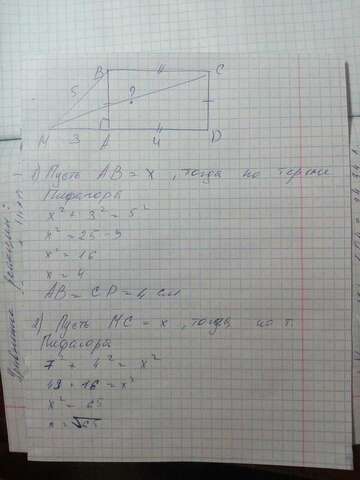 B
C
5
?
M
3
A
4
D
1) Пусть AB = x, тогда по теореме
Пифагора
x² + 3² = 5²
x² = 25 - 9
x² = 16
x = 4
AB = CD = 4 см
2) Пусть MC = x, тогда по т.
Пифагора
7² + 4² = x²
49 + 16 = x²
x² = 65
x = √65